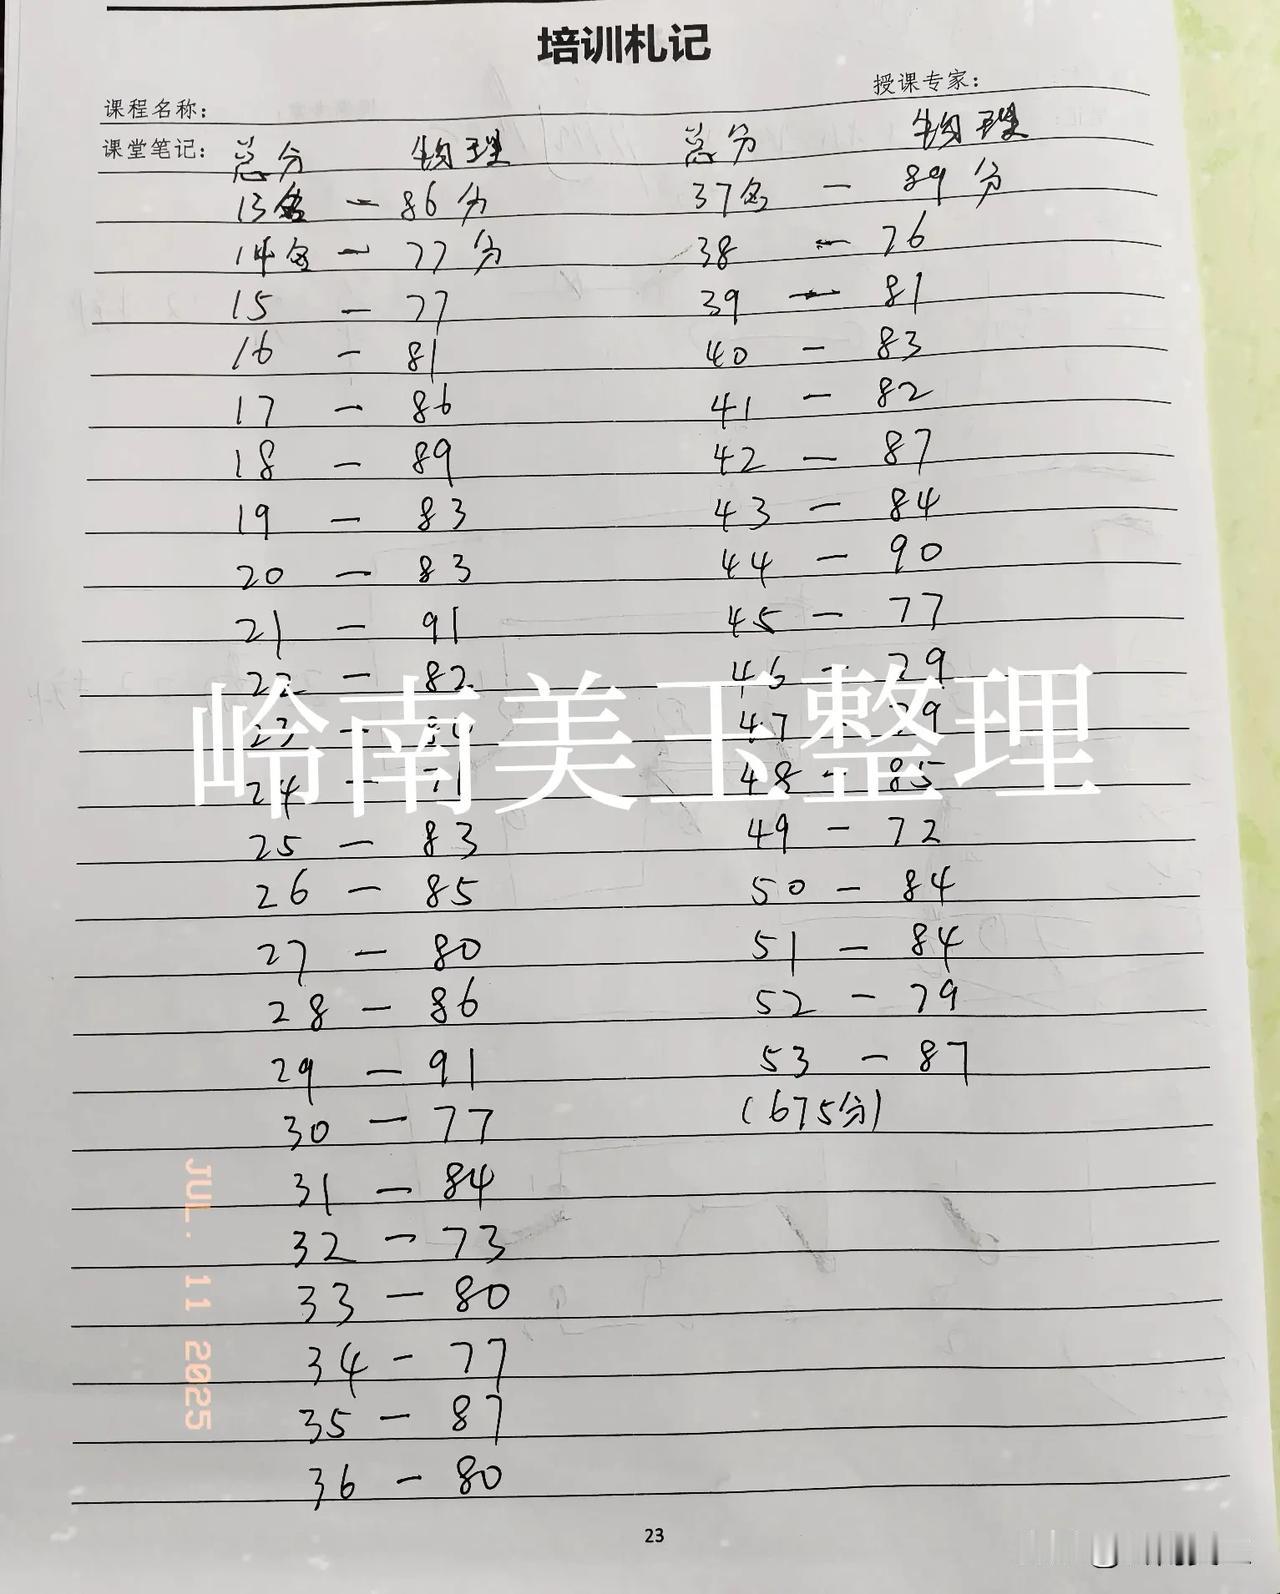 培训札记
课程名称：
授课专家：
课堂笔记：
总分 物理
13名 — 86分
14名 — 77分
15 — 77
16 — 81
17 — 86
18 — 89
19 — 83
20 — 83
21 — 91
22 — 82
23 —
24 —
25 — 83
26 — 85
27 — 80
28 — 86
29 — 91
30 — 77
31 — 84
32 — 73
33 — 80
34 — 77
35 — 87
36 — 80
总分 物理
37名 — 89分
38 — 76
39 — 81
40 — 83
41 — 82
42 — 87
43 — 84
44 — 90
45 — 77
46 - 79
47 - 79
48 - 85
49 — 72
50 — 84
51 — 84
52 — 79
53 — 87
(675分)
岭南美玉整理
JUL. 11 2025
23